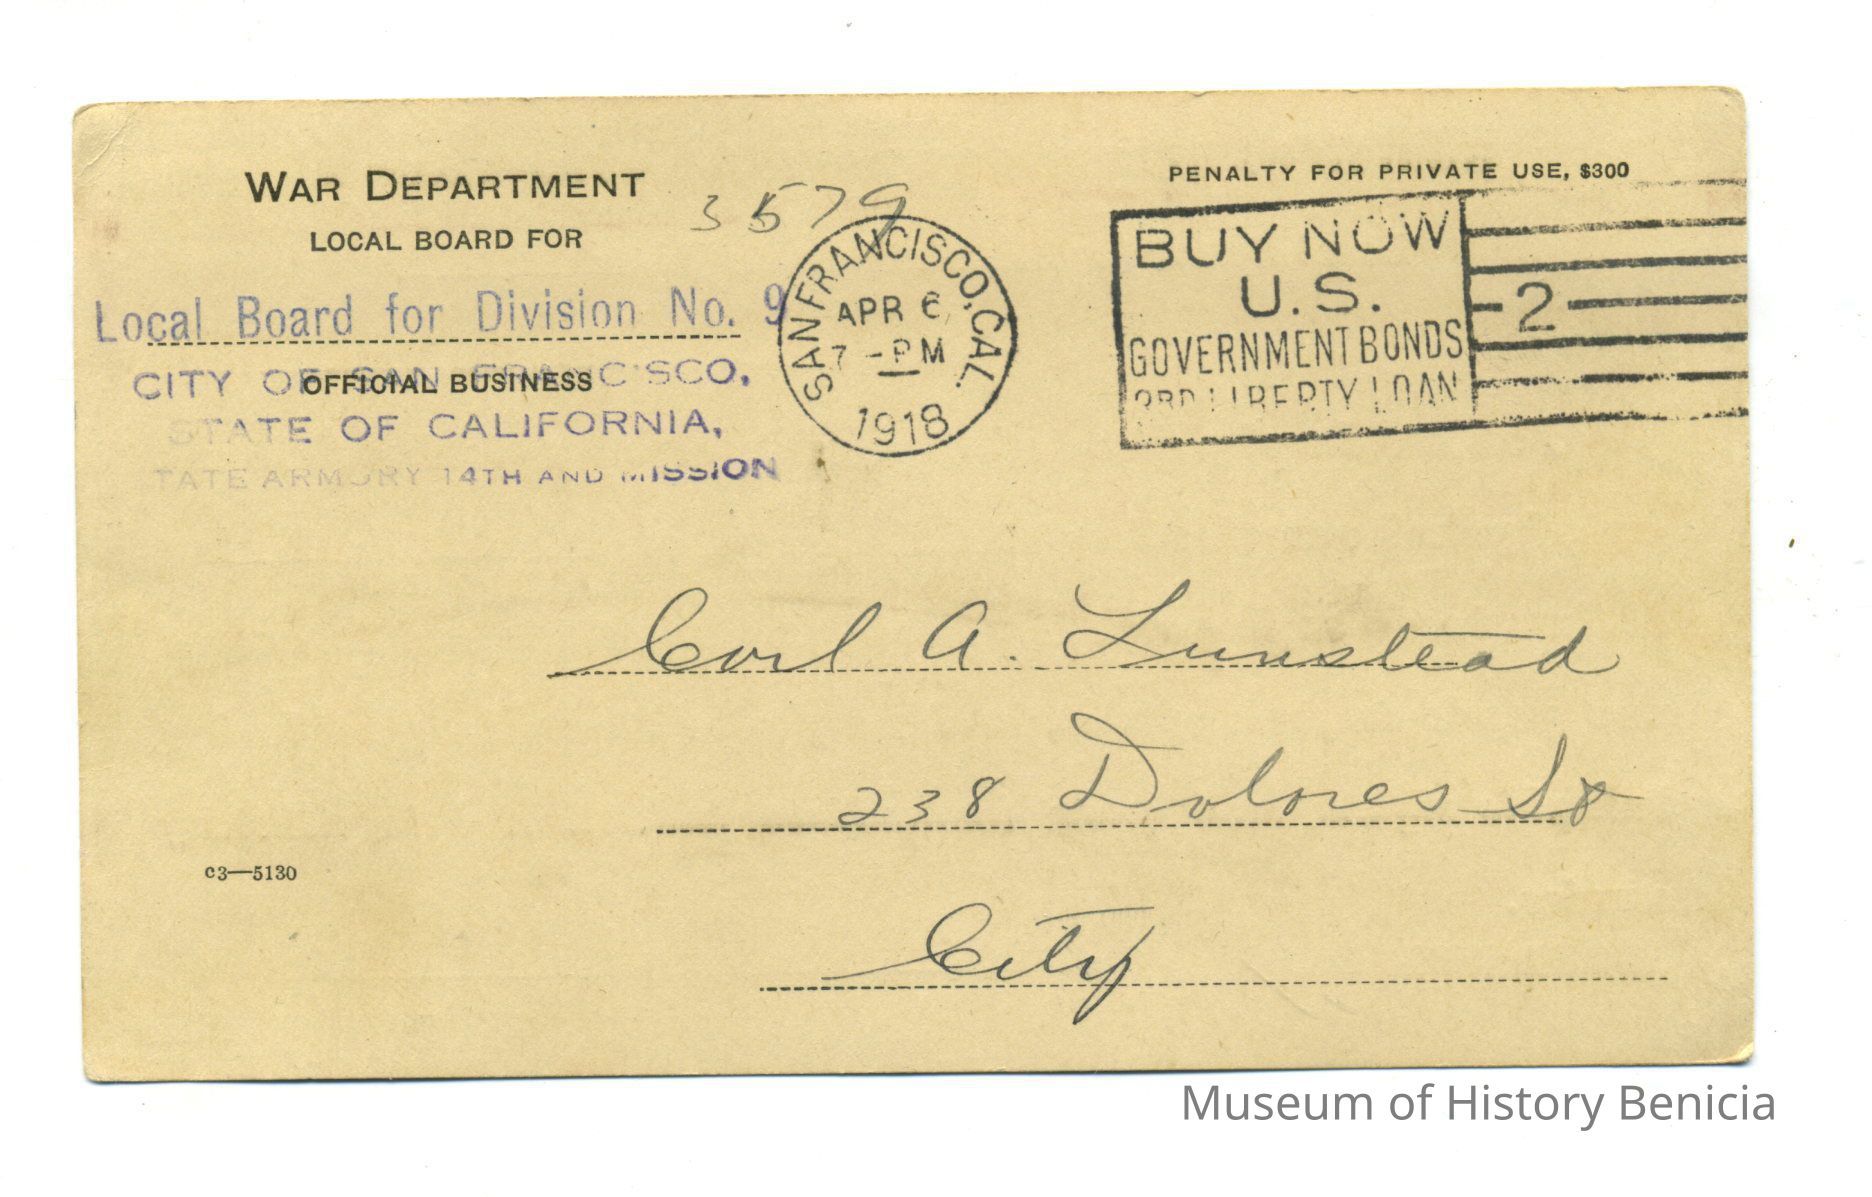 WAR DEPARTMENT
LOCAL BOARD FOR
Local Board for Division No. 9
CITY OF SAN FRANCISCO,
OFFICIAL BUSINESS
STATE OF CALIFORNIA,
TATE ARMORY 14TH AND MISSION
3579
SAN FRANCISCO, CAL.
APR 6
7 - PM
1918
PENALTY FOR PRIVATE USE, $300
BUY NOW
U.S.
GOVERNMENT BONDS
3RD LIBERTY LOAN
2
Carl A. Lunstead
238 Dolores St
City
c3—5130
Museum of History Benicia